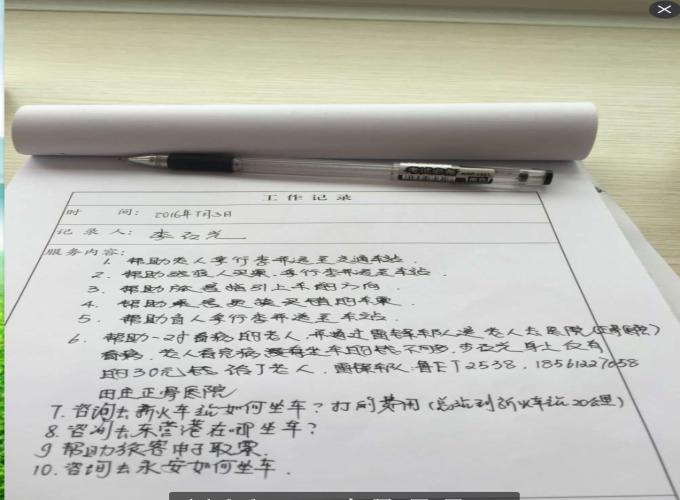 工作记录
时 间: 2016年7月3日
记 录 人: 李
服务内容:
1. 帮助老人拿行李并送至交通车站.
2. 帮助 人买票,拿行李并送至车站.
3. 帮助旅客指引上车的方向.
4. 帮助 的车票.
5. 帮助盲人拿行李并送至车站.
6. 帮助一对看病的老人,并通过雷锋车队送老人去医院(正骨医院)
看病,老人看完病没有坐车的钱不同乡,李 光身上仅有
的30元钱给了老人,雷锋车队.鲁ET2538,18561227058
田庄正骨医院
7. 咨询去新火车站如何坐车?打的费用(总站到新火车站20公里)
8. 咨询去东营港在哪坐车?
9 帮助旅客 取票.
10. 咨询去永安如何坐车.